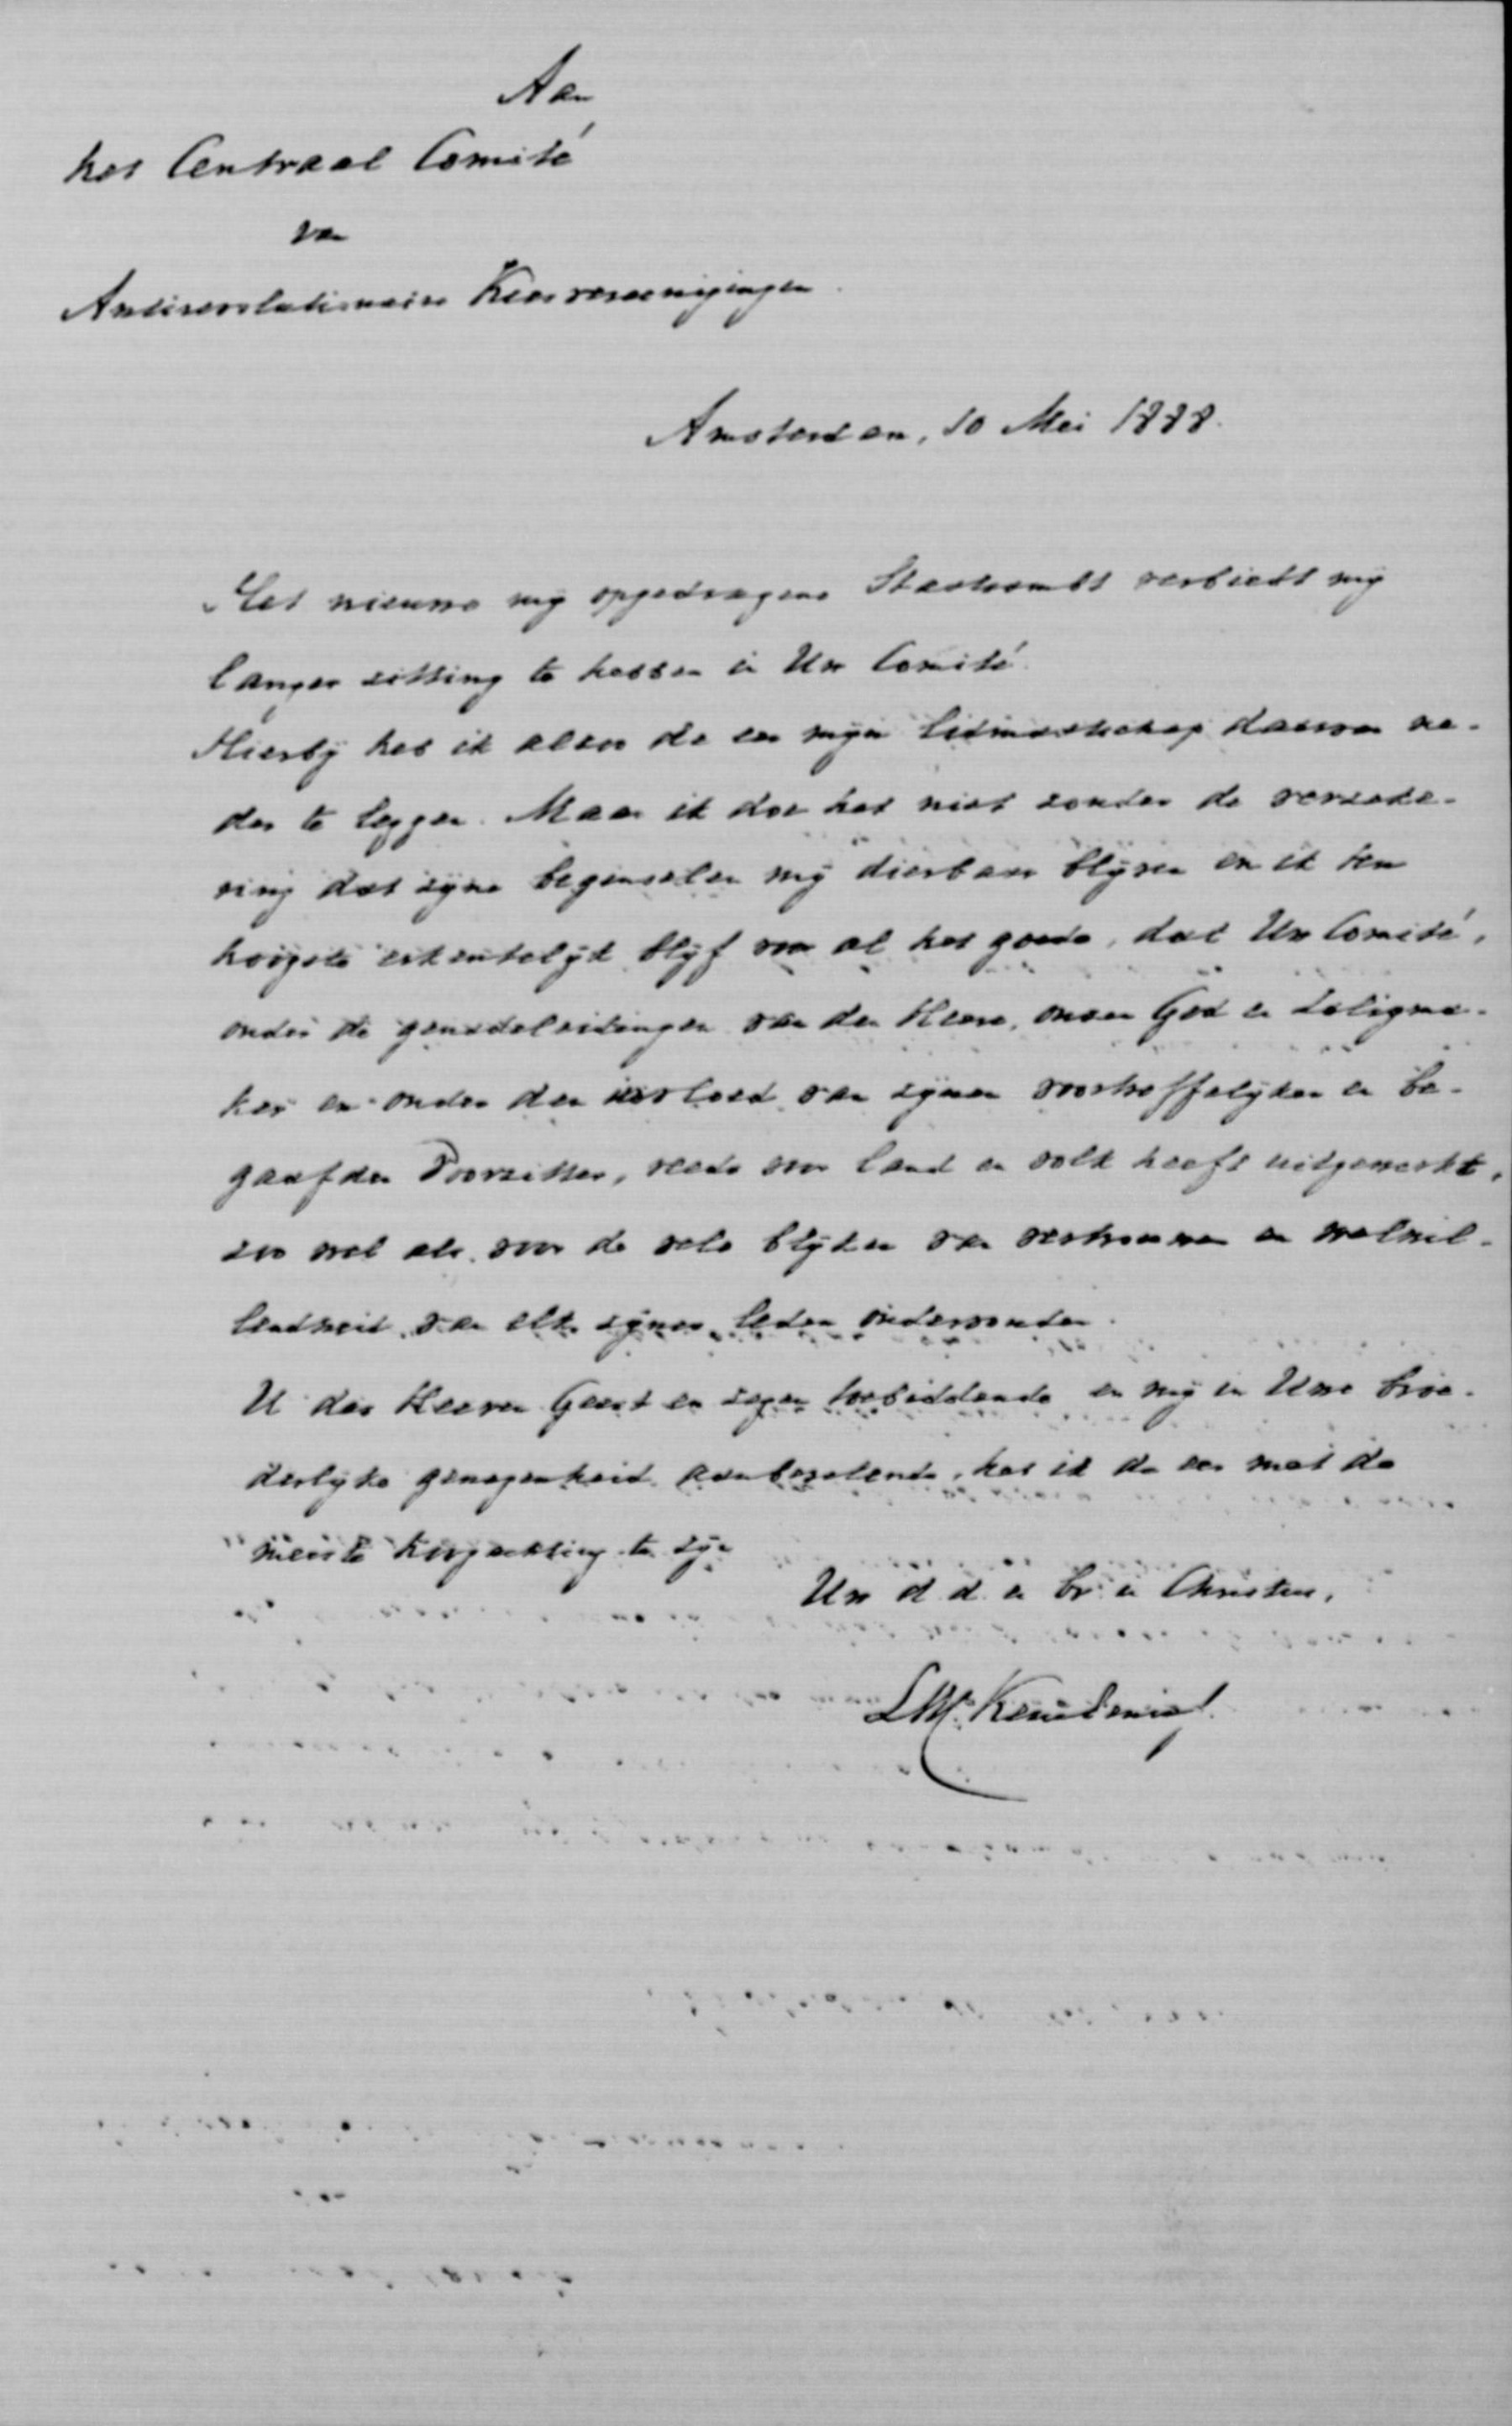 Aan
het Centraal Comité
van
Antirevolutionaire Kiesvereenigingen.
Amsterdam, 10 Mei 1888.
Het nieuwe mij opgedragene Staatsambt verbiedt mij
langer zitting te hebben in Uw Comité.
Hierbij heb ik alzoo de eer mijn lidmaatschap daarvan ne-
der te leggen. Maar ik doe het niet zonder de verzeke-
ring dat zijne beginselen mij dierbaar blijven en ik ten
hoogste erkentelijk blijf voor al het goede, dat Uw Comité,
onder de genadeleidingen van den Heere, onzen God en Zaligma-
ker en onder den invloed van zijnen voortreffelijken en be-
gaafden Voorzitter, reeds voor land en volk heeft uitgewerkt,
zoo wel als voor de vele blijken van vertrouwen en welwil-
lendheid van elk zijner leden ondervonden.
U des Heeren Geest en zegen toebiddende en mij in Uwe broe-
derlijke genegenheid aanbevelende, heb ik de eer met de
meeste hoogachting te zijn
Uw d d. en br. in Christus,
LWC Keuchenius.